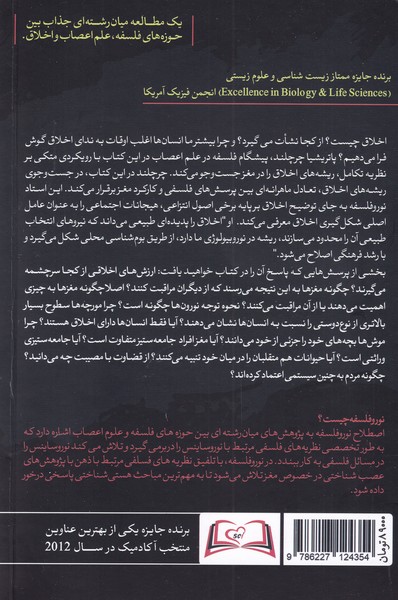 یک مطالعه میان‌رشته‌ای جذاب بین
حوزه‌های فلسفه، علم اعصاب و اخلاق.
برنده جایزه ممتاز زیست شناسی و علوم زیستی
(Excellence in Biology & Life Sciences) انجمن فیزیک آمریکا
اخلاق چیست؟ از کجا نشأت می‌گیرد؟ و چرا بیشتر ما انسان‌ها اغلب اوقات به ندای اخلاق گوش
فرا می‌دهیم؟ پاتریشیا چرچلند، پیشگام فلسفه در علم اعصاب در این کتاب با رویکردی متکی بر
نظریه تکامل، ریشه‌های اخلاق را در مغز جست‌وجو می‌کند. چرچلند در این کتاب، در جست‌وجوی
ریشه‌های اخلاق، تعادل ماهرانه‌ای بین پرسش‌های فلسفی و کارکرد مغز برقرار می‌کند. این استاد
نوروفلسفه به جای توضیح اخلاق بر پایه برخی اصول انتزاعی، هیجانات اجتماعی را به عنوان عامل
اصلی شکل گیری اخلاق معرفی می‌کند. او "اخلاق را پدیده‌ای طبیعی می‌داند که نیروهای انتخاب
طبیعی آن را محدود می‌سازند، ریشه در نوروبیولوژی ما دارد، از طریق بوم‌شناسی محلی شکل می‌گیرد و
با رشد فرهنگی اصلاح می‌شود."
بخشی از پرسش‌هایی که پاسخ آن را در کتاب خواهید یافت: ارزش‌های اخلاقی از کجا سرچشمه
می‌گیرند؟ چگونه مغزها به این نتیجه می‌رسند که از دیگران مراقبت کنند؟ اصلا چگونه مغزها به چیزی
اهمیت می‌دهند یا از آن مراقبت می‌کنند؟ نحوه توجه نورون‌ها چگونه است؟ چرا مورچه‌ها سطوح بسیار
بالاتری از نوع‌دوستی را نسبت به انسان‌ها نشان می‌دهند؟ آیا فقط انسان‌ها دارای اخلاق هستند؟ چرا
موش‌ها بچه‌های خود را جزئی از خود می‌دانند؟ آیا مغز افراد جامعه‌ستیز متفاوت است؟ آیا جامعه‌ستیزی
وراثتی است؟ آیا حیوانات هم متقلبان را در میان خود تنبیه می‌کنند؟ از قضاوت با مصیبت چه می‌دانید؟
چگونه مردم به چنین سیستمی اعتماد کرده‌اند؟
نوروفلسفه چیست؟
اصطلاح نوروفلسفه به پژوهش‌های میان‌رشته‌ای بین حوزه‌های فلسفه و علوم اعصاب اشاره دارد که
به طور تخصصی نظریه‌های فلسفی مرتبط با نوروساینس را دربر می گیرد و تلاش می‌کند نوروساینس را
در مسائل فلسفی به کار ببندد. در نوروفلسفه، با تلفیق نظریه های فسلفی مرتبط با ذهن با پژوهش‌های
عصب شناختی در خصوص مغز تلاش می‌شود تا به مهم‌ترین مباحث هستی‌شناختی پاسخی درخور
داده شود.
برنده جایزه یکی از بهترین عناوین
منتخب آکادمیک در ســال 2012
sci
۸۹۰۰۰ تومان
9 786227 124354